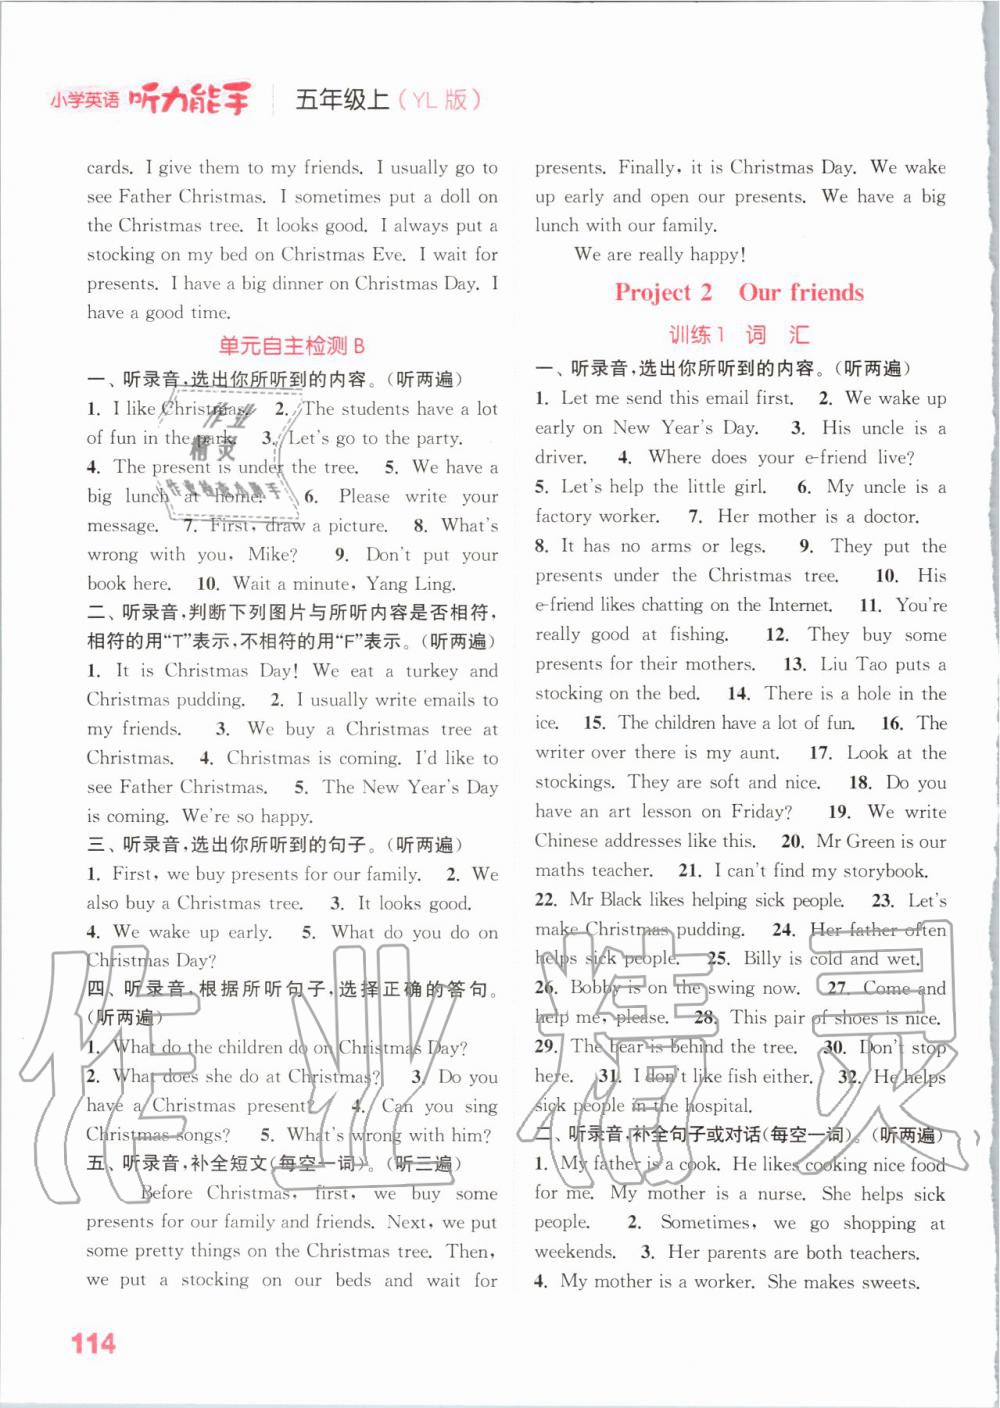 小学英语 听力能手 五年级上（YL版）
cards. I give them to my friends. I usually go to
see Father Christmas. I sometimes put a doll on
the Christmas tree. It looks good. I always put a
stocking on my bed on Christmas Eve. I wait for
presents. I have a big dinner on Christmas Day. I
have a good time.
单元自主检测 B
一、听录音,选出你所听到的内容。(听两遍)
1. I like Christmas. 2. The students have a lot
of fun in the park. 3. Let's go to the party.
4. The present is under the tree. 5. We have a
big lunch at home. 6. Please write your
message. 7. First, draw a picture. 8. What's
wrong with you, Mike? 9. Don't put your
book here. 10. Wait a minute, Yang Ling.
二、听录音,判断下列图片与所听内容是否相符,
相符的用“T”表示,不相符的用“F”表示。(听两遍)
1. It is Christmas Day! We eat a turkey and
Christmas pudding. 2. I usually write emails to
my friends. 3. We buy a Christmas tree at
Christmas. 4. Christmas is coming. I'd like to
see Father Christmas. 5. The New Year's Day
is coming. We're so happy.
三、听录音,选出你所听到的句子。(听两遍)
1. First, we buy presents for our family. 2. We
also buy a Christmas tree. 3. It looks good.
4. We wake up early. 5. What do you do on
Christmas Day?
四、听录音,根据所听句子,选择正确的答句。
(听两遍)
1. What do the children do on Christmas Day?
2. What does she do at Christmas? 3. Do you
have a Christmas present? 4. Can you sing
Christmas songs? 5. What's wrong with him?
五、听录音,补全短文(每空一词)。(听三遍)
Before Christmas, first, we buy some
presents for our family and friends. Next, we put
some pretty things on the Christmas tree. Then,
we put a stocking on our beds and wait for
presents. Finally, it is Christmas Day. We wake
up early and open our presents. We have a big
lunch with our family.
We are really happy!
Project 2 Our friends
训练1 词 汇
一、听录音,选出你所听到的内容。(听两遍)
1. Let me send this email first. 2. We wake up
early on New Year's Day. 3. His uncle is a
driver. 4. Where does your e-friend live?
5. Let's help the little girl. 6. My uncle is a
factory worker. 7. Her mother is a doctor.
8. It has no arms or legs. 9. They put the
presents under the Christmas tree. 10. His
e-friend likes chatting on the Internet. 11. You're
really good at fishing. 12. They buy some
presents for their mothers. 13. Liu Tao puts a
stocking on the bed. 14. There is a hole in the
ice. 15. The children have a lot of fun. 16. The
writer over there is my aunt. 17. Look at the
stockings. They are soft and nice. 18. Do you
have an art lesson on Friday? 19. We write
Chinese addresses like this. 20. Mr Green is our
maths teacher. 21. I can't find my storybook.
22. Mr Black likes helping sick people. 23. Let's
make Christmas pudding. 24. Her father often
helps sick people. 25. Billy is cold and wet.
26. Bobby is on the swing now. 27. Come and
help me, please. 28. This pair of shoes is nice.
29. The bear is behind the tree. 30. Don't stop
here. 31. I don't like fish either. 32. He helps
sick people in the hospital.
二、听录音,补全句子或对话(每空一词)。(听两遍)
1. My father is a cook. He likes cooking nice food
for me. My mother is a nurse. She helps sick
people. 2. Sometimes, we go shopping at
weekends. 3. Her parents are both teachers.
4. My mother is a worker. She makes sweets.
114
作业精灵